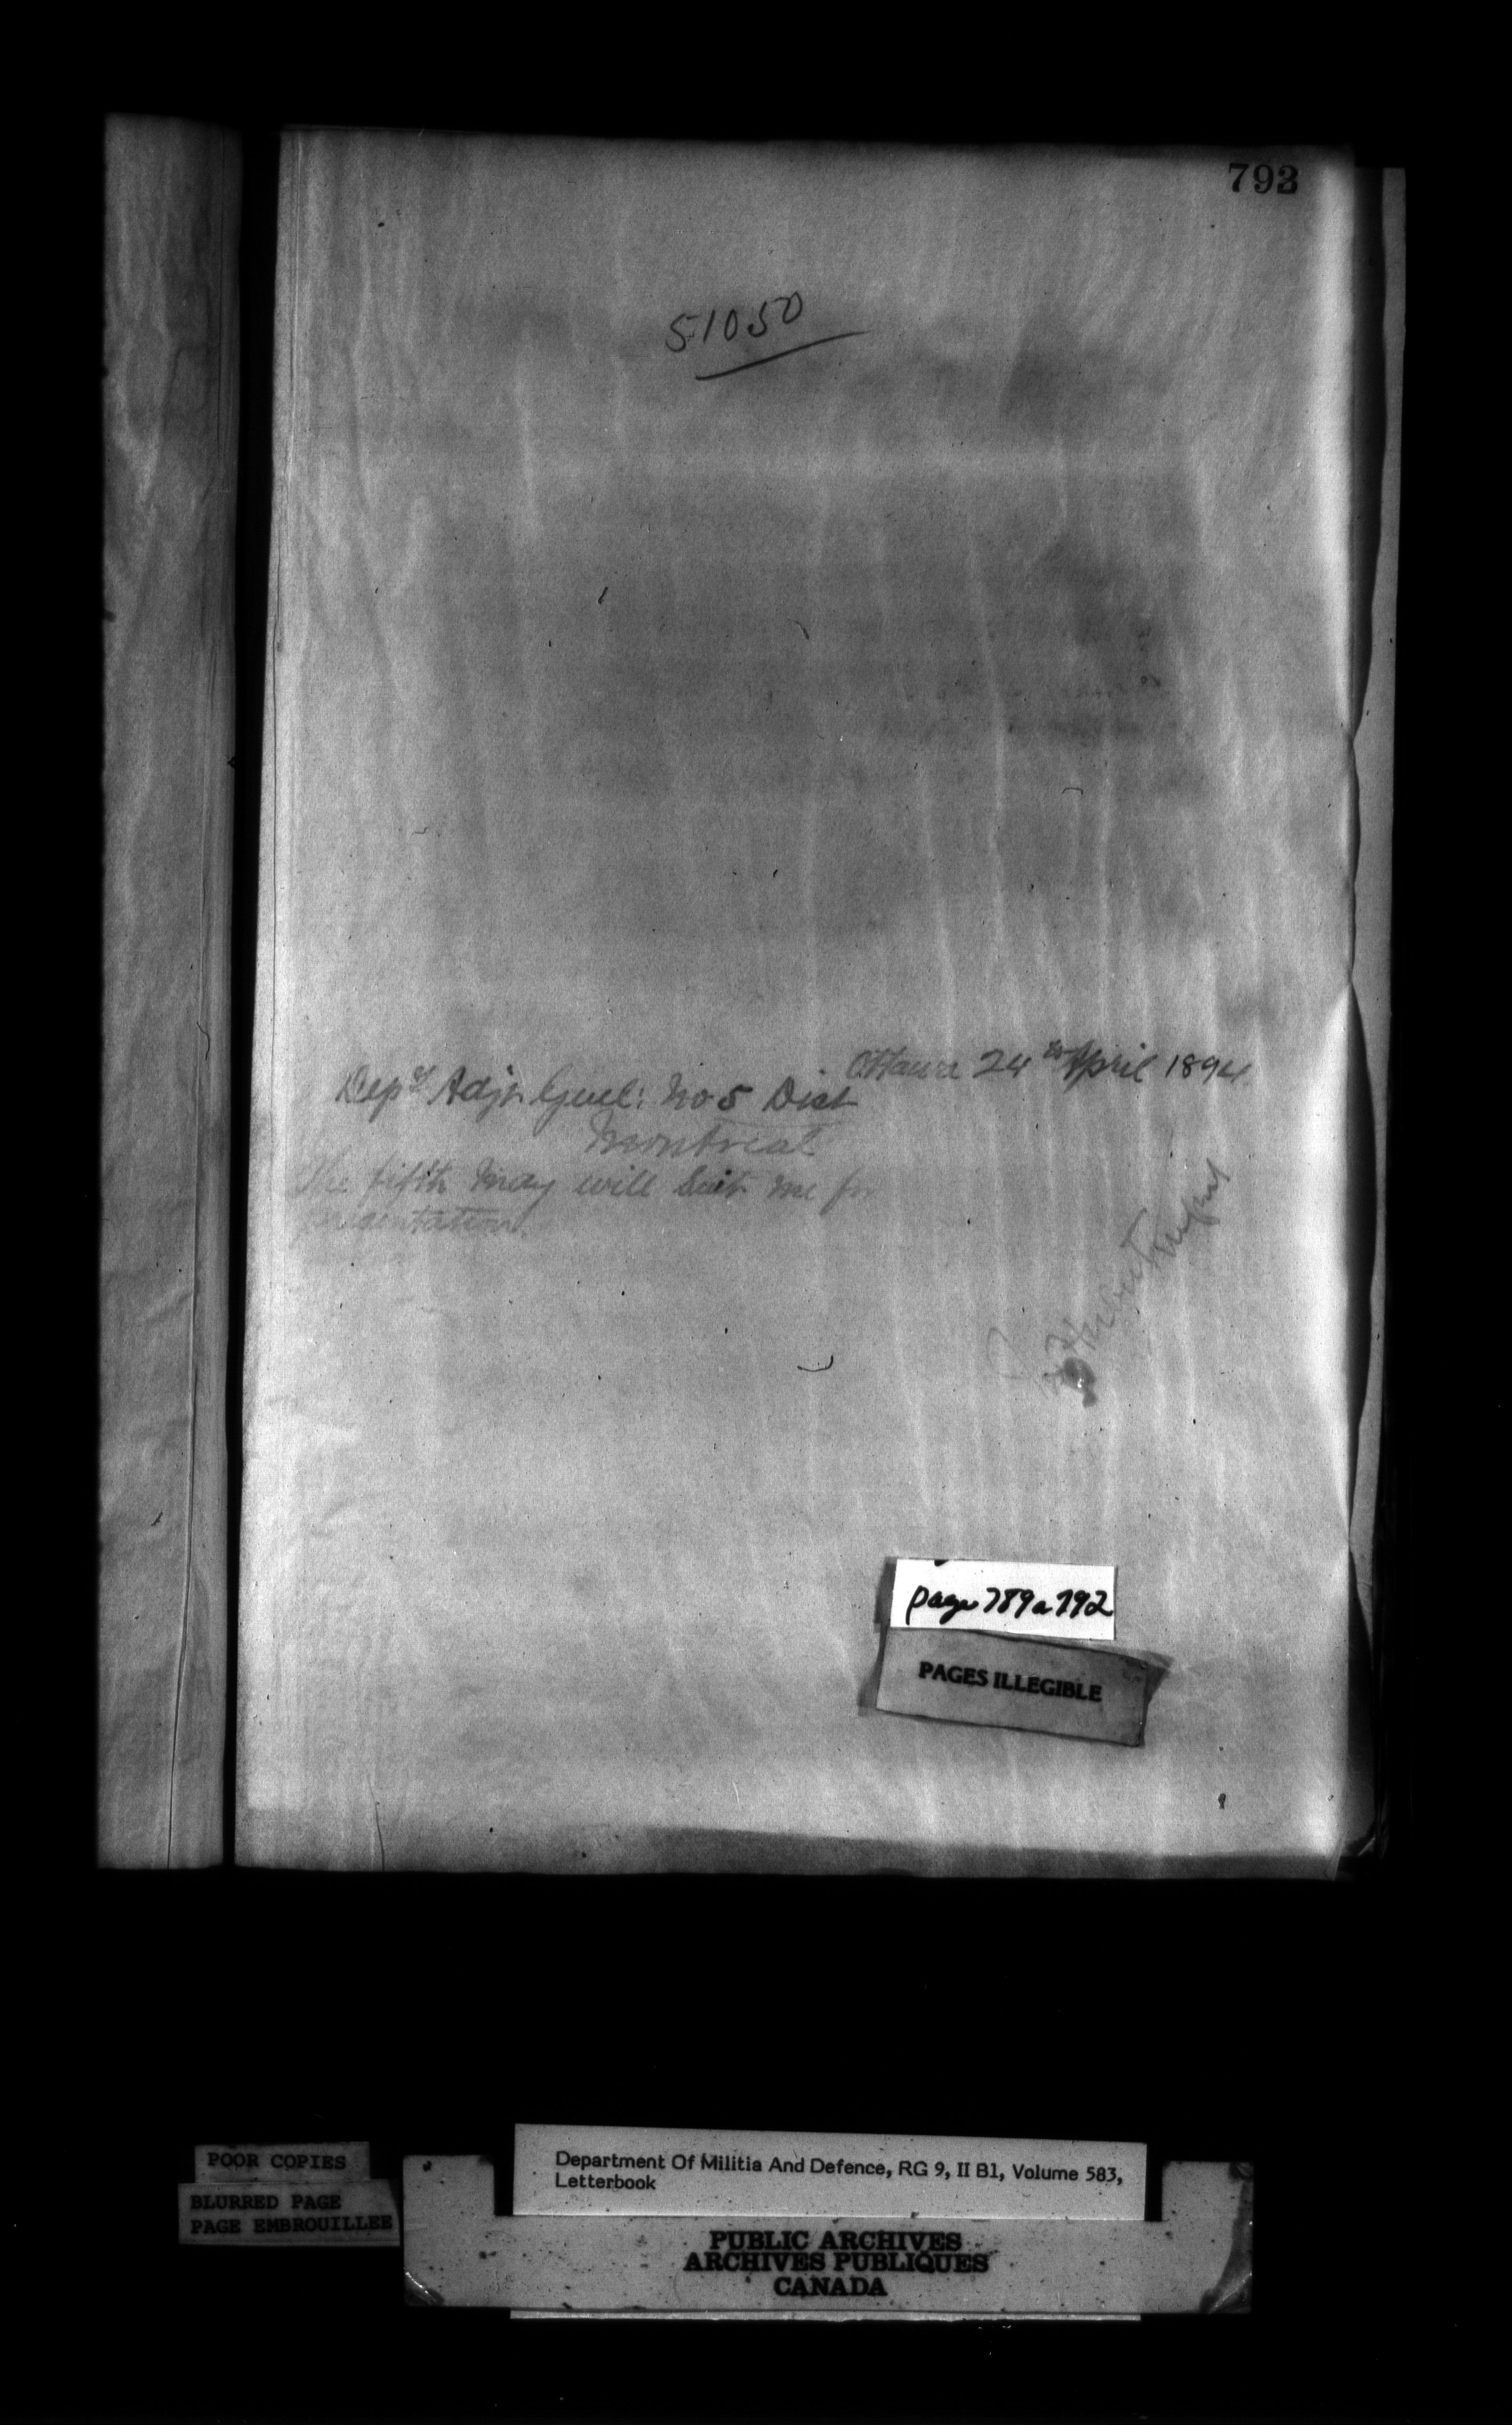 793
51050
Ottawa 24th April 1894
Depy Adjt Genl: No 5 Dist
Montreal
The fifth May will suit me for
presentation.
page 789 a 792
PAGES ILLEGIBLE
POOR COPIES
BLURRED PAGE
PAGE EMBROUILLEE
Department Of Militia And Defence, RG 9, II B1, Volume 583,
Letterbook
PUBLIC ARCHIVES
ARCHIVES PUBLIQUES
CANADA